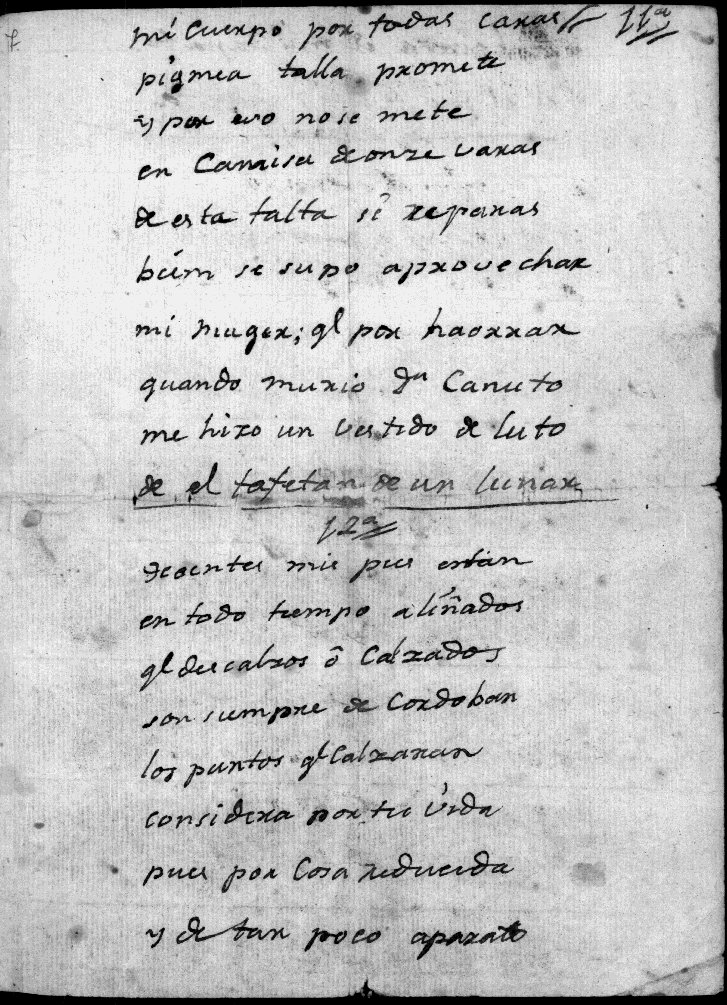 7.
mi cuerpo por todas caras 11ª
pigmea talla promete
y por eso no se mete
en Camisa de onze varas
de esta falta si reparas
bien se supo aprovechar
mi muger; q̃l por haorrar
quando murio Dn Canuto
me hizo un vestido de luto
de el tafetan de un lunar
12ª
decentes mis pies están
en todo tiempo aliñados
q̃l descalzos ô Calzados
son siempre de Cordoban
los puntos q̃l Calzaran
considera por tu vida
pues por Cosa reducida
y de tan poco aparato